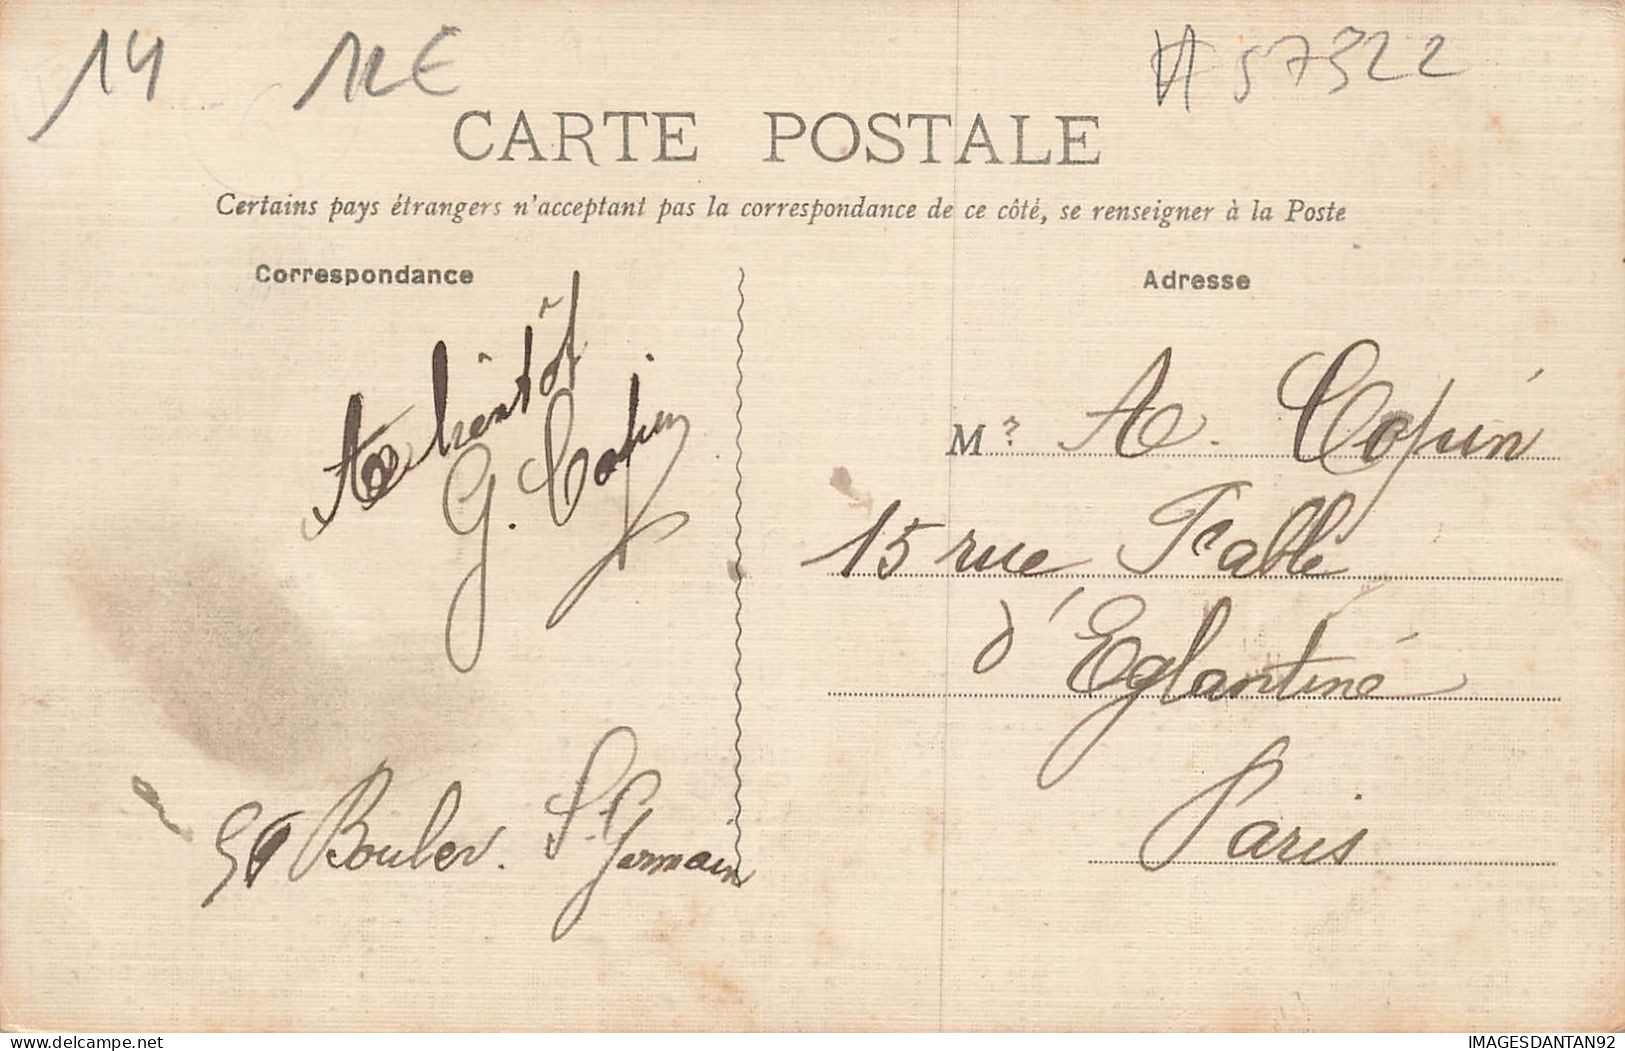 14 12€ # 57322
CARTE POSTALE
Certains pays étrangers n'acceptant pas la correspondance de ce côté, se renseigner à la Poste
Correspondance
A bientôt
G. Copin
50 Boulev. St. Germain
Adresse
M. A. Copin
15 rue Fable
d'Eglantine
Paris
IMAGESDANTAN92